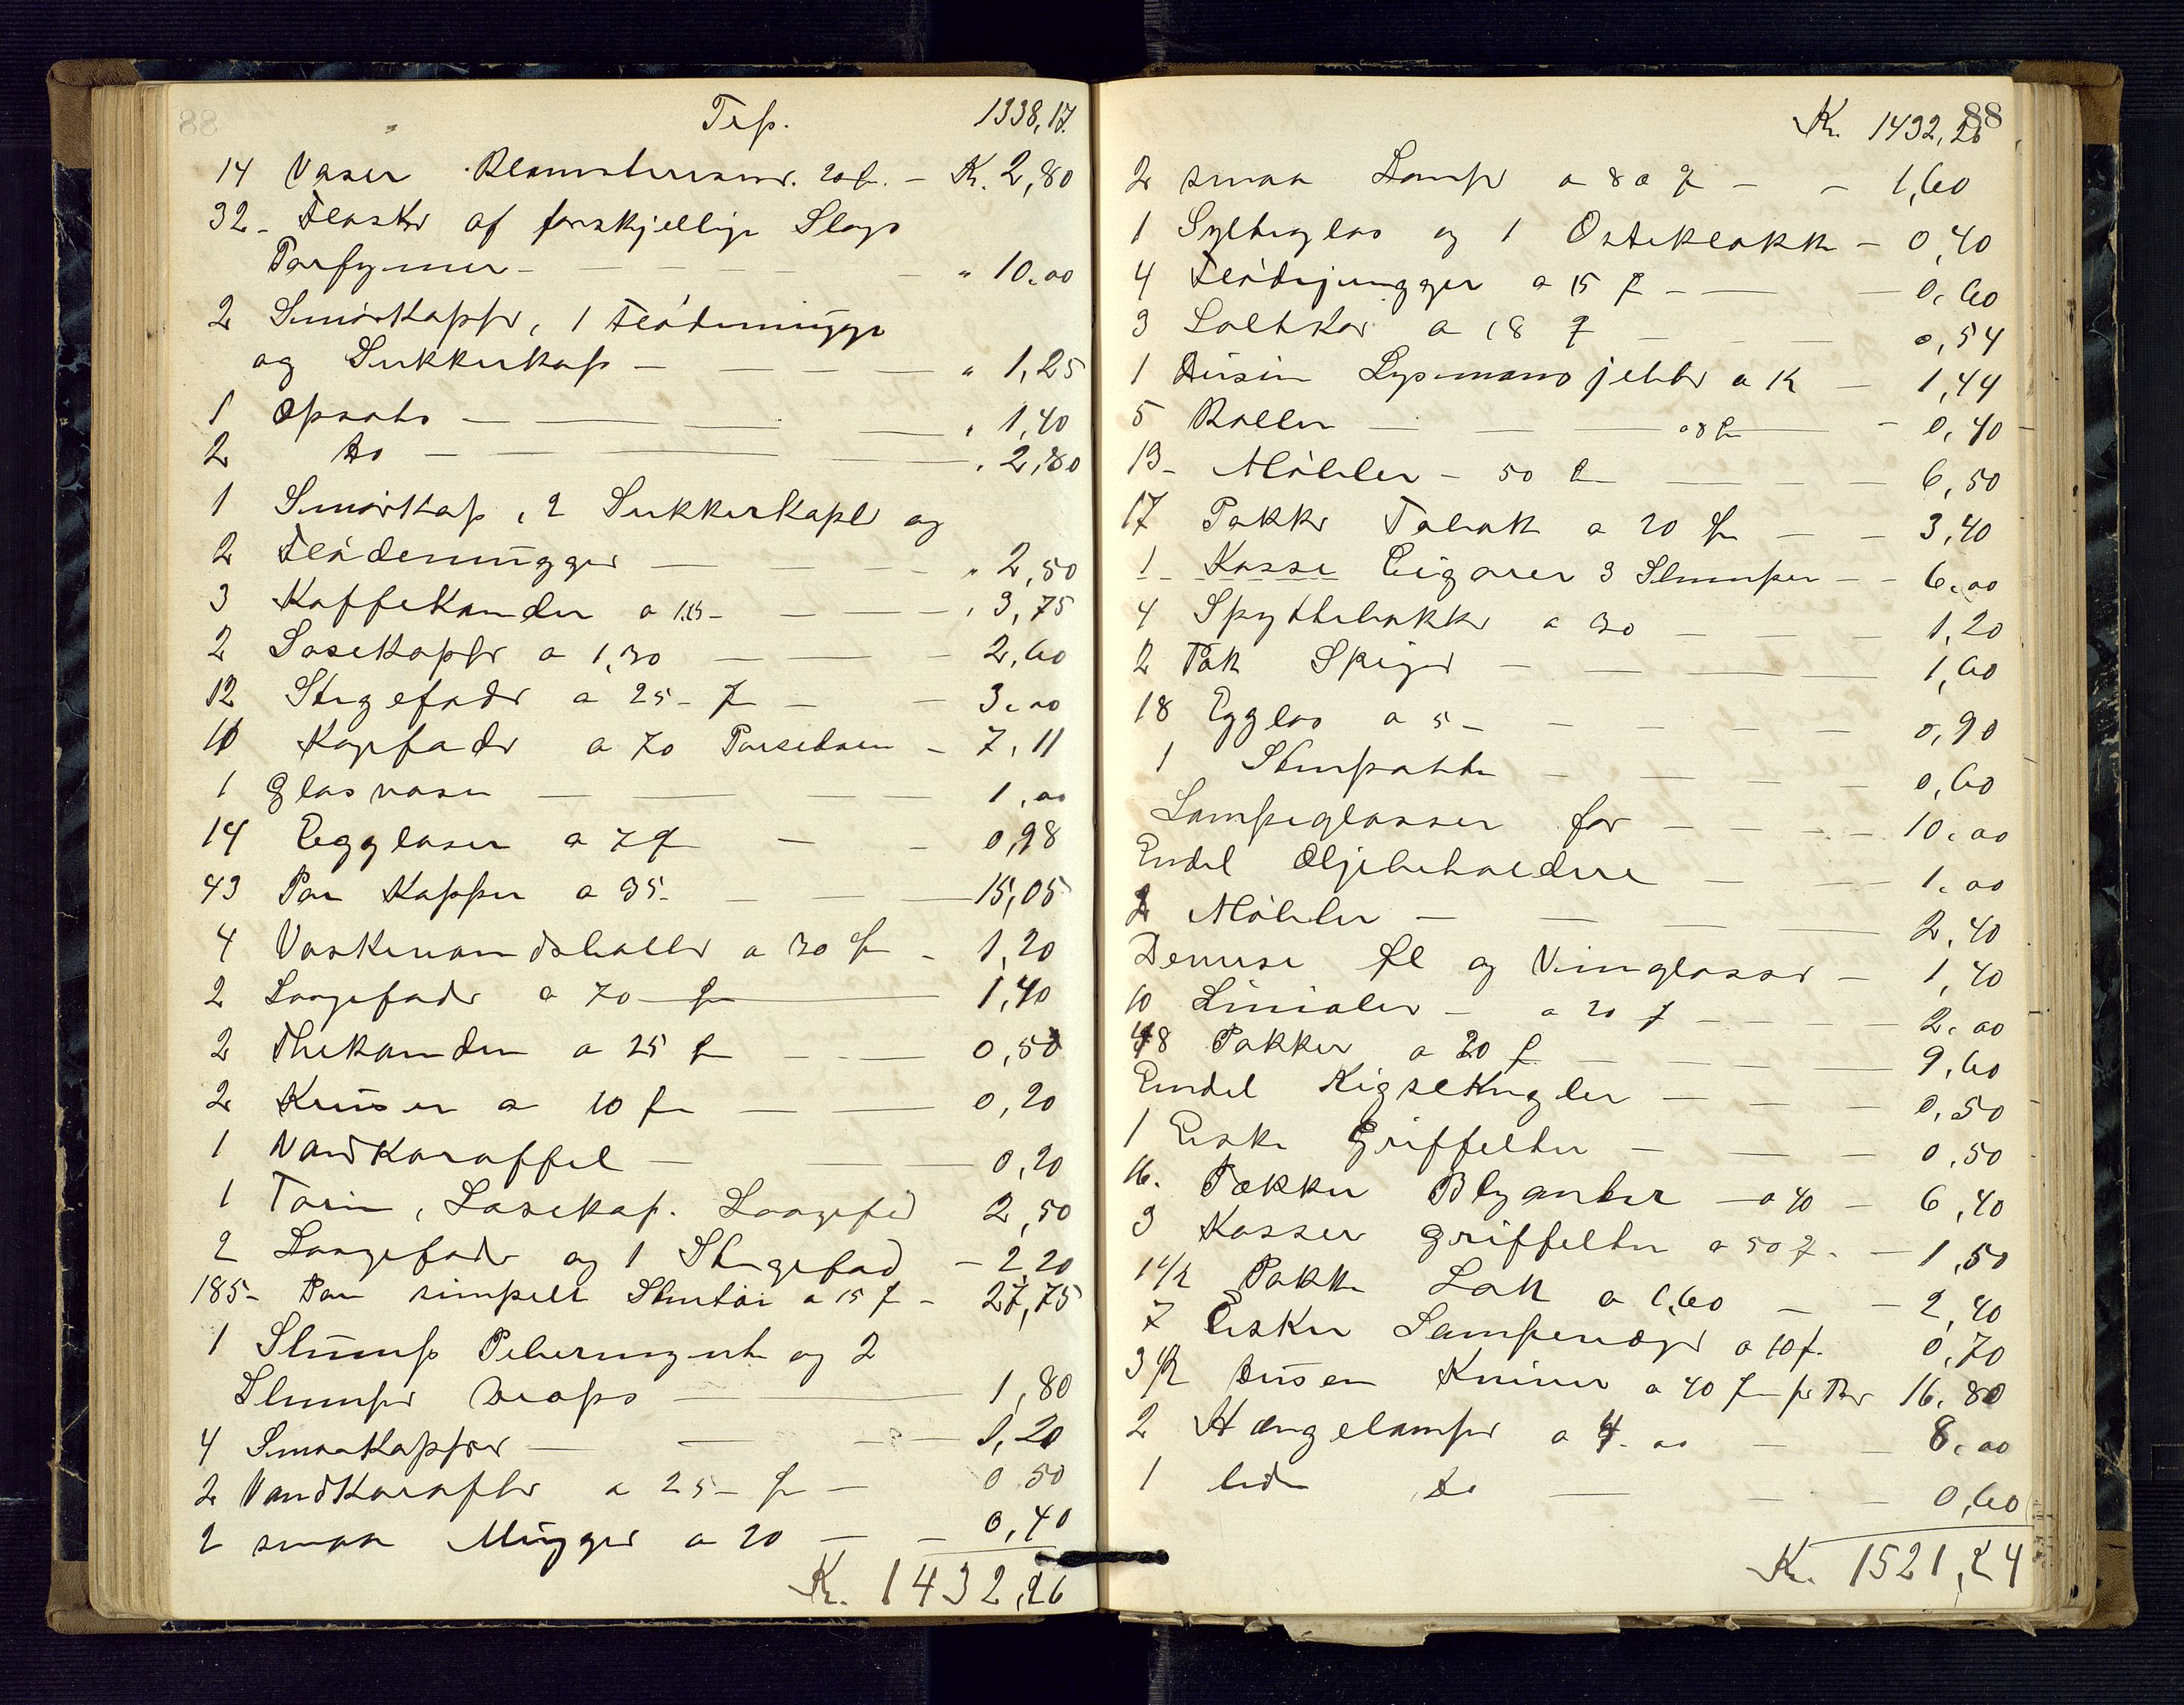 Trsp. 1338,17.
14 Vaser Blomsterism. 20 f. - Kr. 2,80
32 - Flasker af forskjellige Slags
Parfymer - " 10.00
2 Smørkopper, 1 Flødemugge
og Sukkerkop - " 1,25
1 Opsats - " 1,40
2 do - " 2,80
1 Smørkop, 2 Sukkerkopper og
2 Flødemugger - " 2,50
3 Kaffekander a 1.25 - " 3,75
2 Sosekopper a 1,30 - 2,60
12 Stegefade a 25 - f - 3.00
10 Kagefade a 70 Porselaen - 7,11
1 Glasvase - 1,00
14 Egglaser a 7 f - 0,98
43 Par Kopper a 35 - 15,05
4 Vaskevandsballer a 30 f - 1,20
2 Laagefade a 70 f - 1,40
2 Thekander a 25 f - 0,50
2 Kruser a 10 f - 0,20
1 Vandkaraffel - 0,20
1 Terin, Sosekop. Laagefad 2,50
2 Laagefade og 1 Stegefad - 2,20
185 - Par simpelt Stentøi a 15 f - 27,75
1 Slump Pebermynte og 2
Slumper Drops - 1,80
4 Smørkopper - 1,20
2 Vandkarafler a 25 - f - 0.50
2 smaa Mugger a 20 - 0,40
Kr. 1432,26
88
Kr. 1432,26
2 smaa Lamper a 80 f - 1,60
1 Sylteglas og 1 Osteklokke - 0,40
4 Flødejungger a 15 f - 0,60
3 Saltkar a 18 f - 0,54
1 Dusin Lysmansjetter a 12 - 1,44
5 Baller - a 8 f - 0,40
13 - Møbler - 50 f - 6,50
17 Pakker Tobak a 20 f - 3,40
1 - Kasse Cigarer 3 Slumper - 6.00
4 Spyttebakker a 30 - 1,20
2 Pak Spiger - 1,60
18 Egglas a 5 - 0,90
1 Stenpotte - 0,60
Lampeglasser for - 10.00
Endel Oljebeholdere - 1.00
2 Møbler - 2,40
Deverse Øl og Vinglasser - 1,40
10 Linialer - a 20 f - 2.00
48 Pakker a 20 f - 9,60
Endel Rigselkugler - 0,50
1 Eske Griffelter - 0,50
16. Pakker Blyanter - a 40 - 6,40
3 Kasser Griffelter a 50 f - 1,50
1 1/2 Pakke Lak a 1,60 - 2,40
7 Esker Lampevæger a 10 f. 0,70
3 1/2 Dusen Kniver a 40 f pr Par 16,80
2 Hængelamper a 4.00 - 8.00
1 liden do - 0,60
Kr. 1521,24